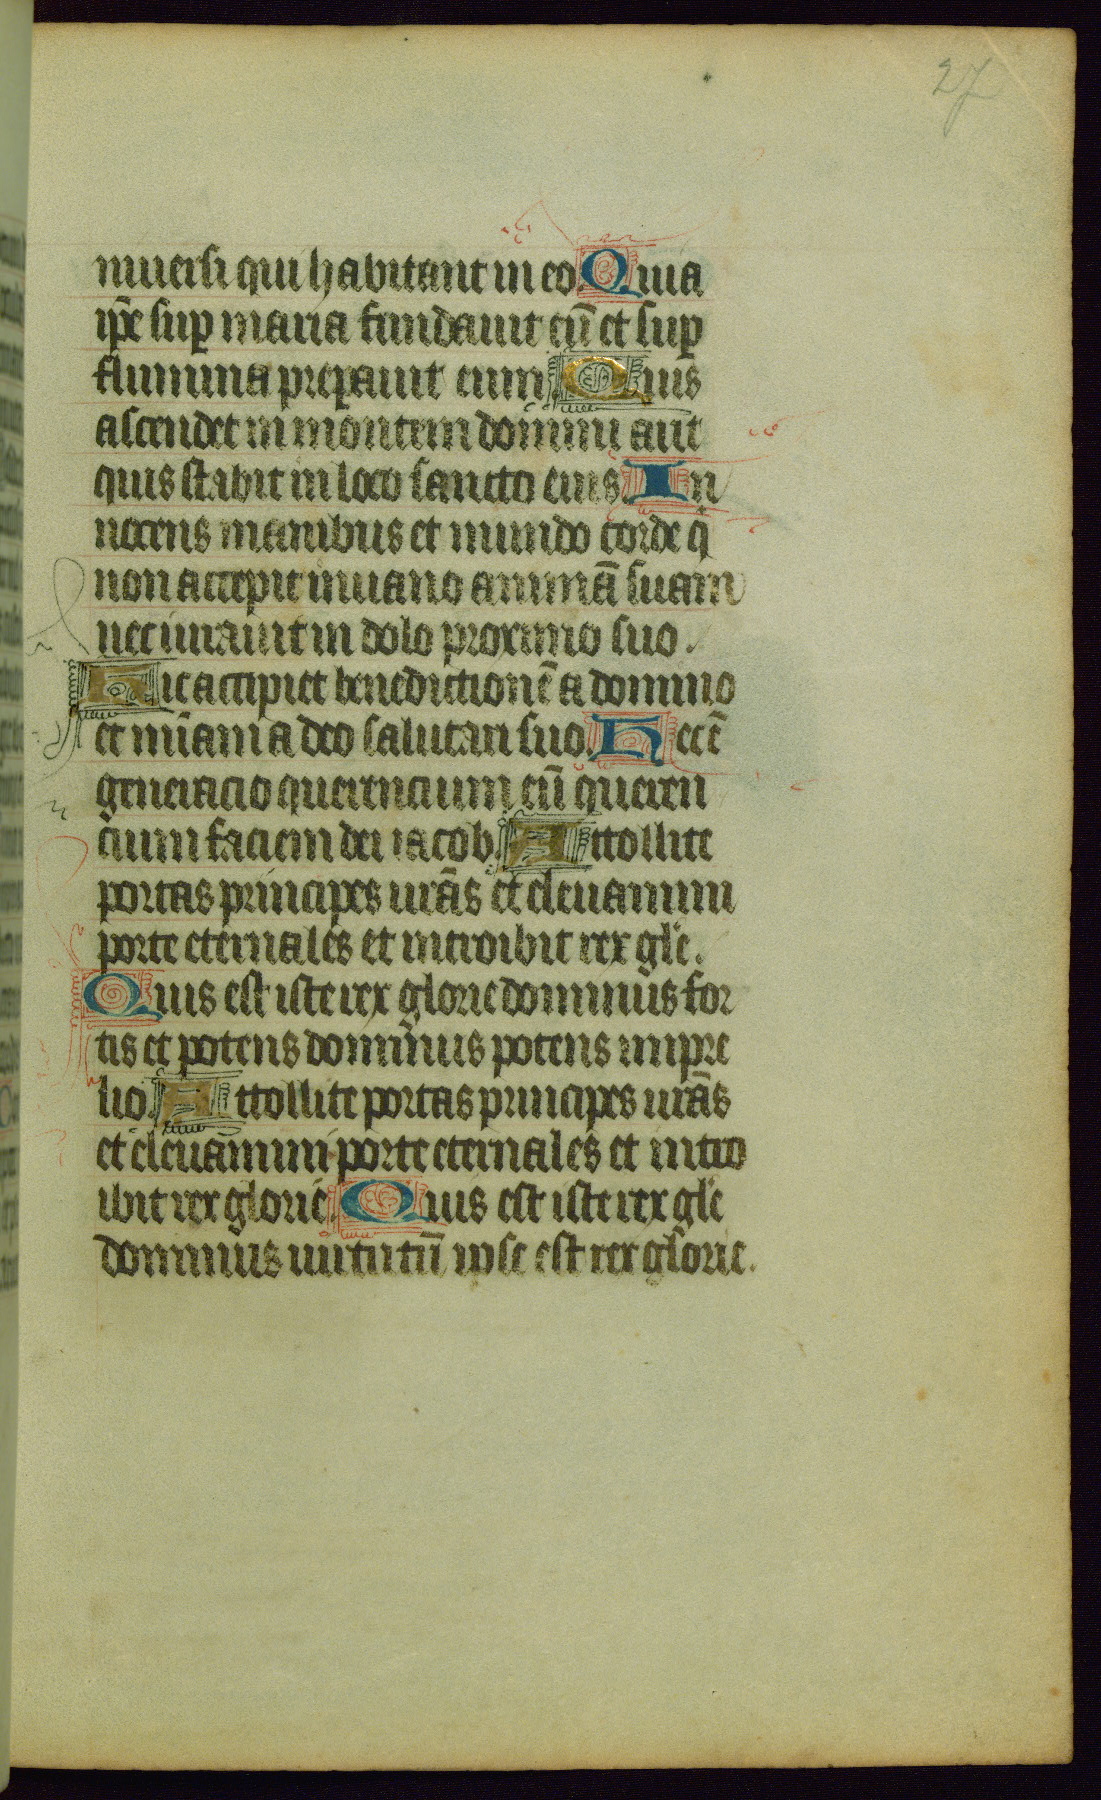 27
niuersi qui habitant in eo. Quia
ip̄e sup̲ maria fundauit eū et sup̲
flumina prep̲auit eum Quis
ascendet in montem domini aut
quis stabit in loco sancto eius. In
nocens manibus et mundo corde q̇
non accepit in uano animā suam
nec iurauit in dolo proximo suo.
Hic accipiet benedictionē a domino
et mīam a deo salutari suo. Hec ē
generacio querencium eū queren
cium faciem dei iacob. Attollite
portas principes urās et eleuamini
porte eternales et introibit rex glīe.
Quis est iste rex glorie dominus for
tis et potens dominus potens in pre
lio. Attollite portas principes urās
et eleuamini porte eternales et intro
ibit rex glorie. Quis est iste rex glīe
dominus uirtutū ipse est rex glorie.